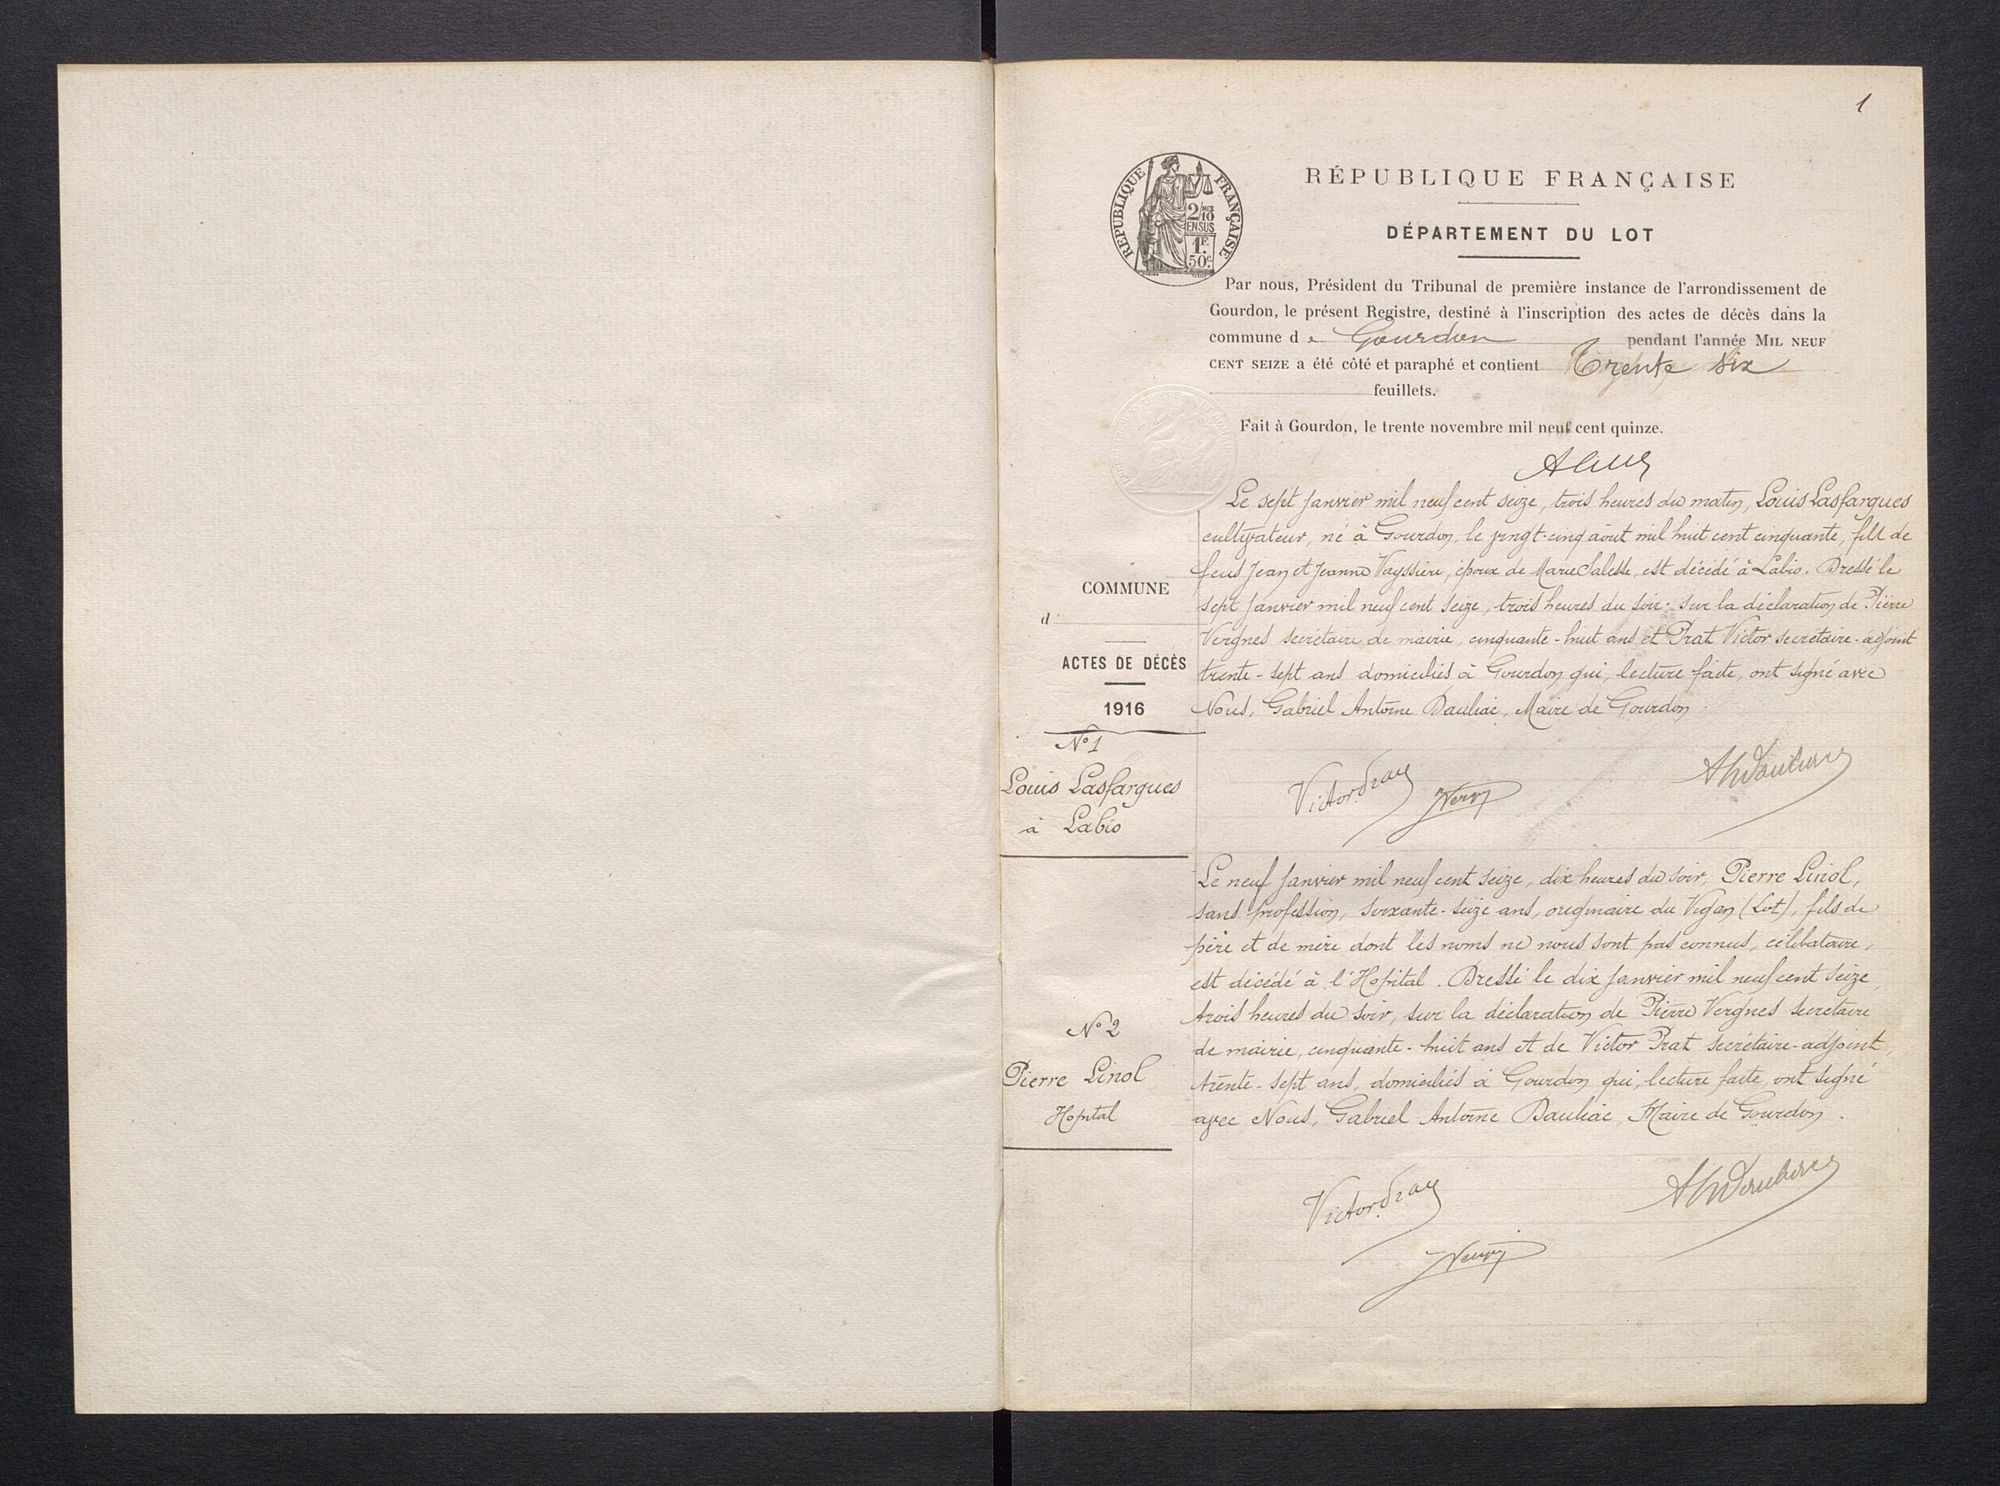 1
RÉPUBLIQUE FRANÇAISE
DÉPARTEMENT DU LOT
RÉPUBLIQUE FRANÇAISE
2/10 MES
EN SUS
1F.
50c.
Par nous, Président du Tribunal de première instance de l'arrondissement de
Gourdon, le présent Registre, destiné à l'inscription des actes de décès dans la
commune de Gourdon pendant l'année MIL NEUF
CENT SEIZE a été côté et paraphé et contient Trente six
feuillets.
Fait à Gourdon, le trente novembre mil neuf cent quinze.
COMMUNE
d
ACTES DE DÉCÈS
1916
N° 1
Louis Lasfargues
à Labio
Le sept janvier mil neuf cent seize, trois heures du matin, Louis Lasfargues
cultivateur, né à Gourdon, le vingt-cinq août mil huit cent cinquante, fils de
feus Jean et Jeanne Vayssière, époux de Marie Salesse, est décédé à Labio. Dressé le
sept janvier mil neuf cent seize, trois heures du soir, sur la déclaration de Pierre
Vergnes secrétaire de mairie, cinquante-huit ans et Prat Victor secrétaire-adjoint
trente-sept ans domiciliés à Gourdon qui, lecture faite, ont signé avec
Nous, Gabriel Antoine Dauliac, Maire de Gourdon
Victor Prat
N° 2
Pierre Linol
Hopital
Le neuf janvier mil neuf cent seize, dix heures du soir, Pierre Linol,
sans profession, soixante-seize ans, originaire du Vigan (Lot), fils de
père et de mère dont les noms ne nous sont pas connus, célibataire,
est décédé à l'Hopital. Dressé le dix janvier mil neuf cent seize,
trois heures du soir, sur la déclaration de Pierre Vergnes secrétaire
de mairie, cinquante-huit ans et de Victor Prat secrétaire-adjoint,
trente-sept ans, domiciliés à Gourdon qui, lecture faite, ont signé
avec Nous, Gabriel Antoine Dauliac, Maire de Gourdon.
Victor Prat